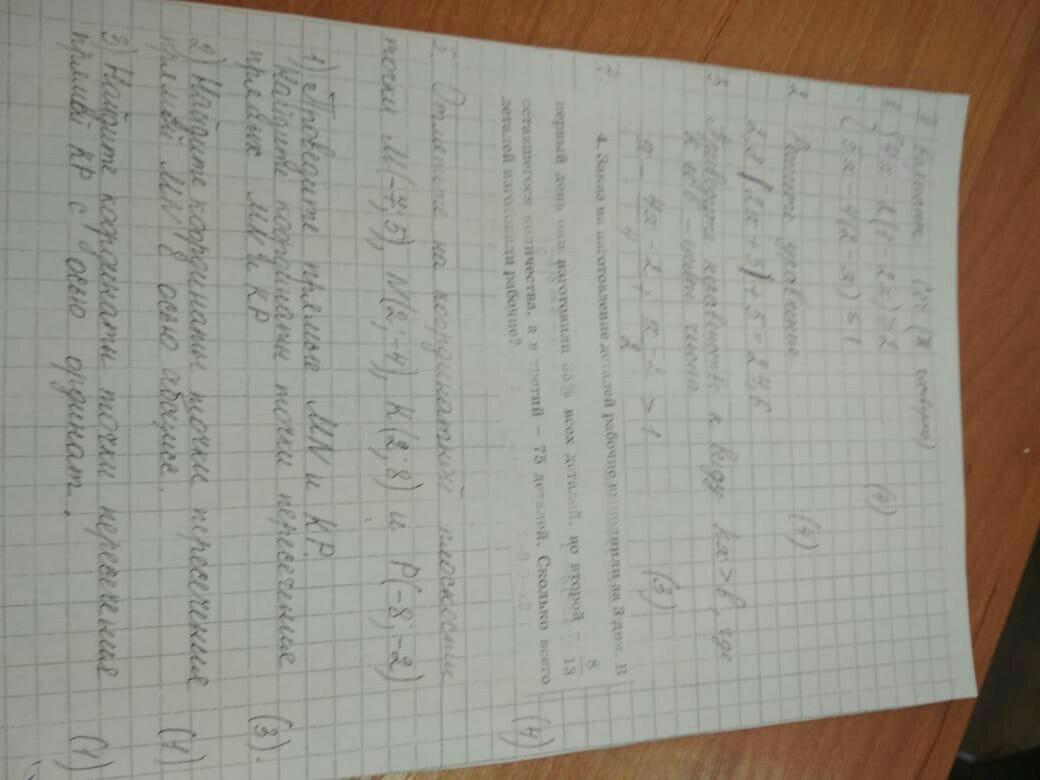 1 вариант Соч (IX
1. { 7x - 2(1 - 2x) ≥ 2
5x - 4(2 - x) ≤ 1 (4)
2 Решите уравнение
2,1 |2x + 3| + 5 = 27,6 (4)
3 Приведите неравенство к виду kx > b, где
k и b - числа.
x - 4x - 2 / 4 + x - 2 / 2 > 1 (3)
4. Заказ на изготовление деталей рабочие выполнили за 3 дня. В
первый день они изготовили 35% всех деталей, во второй - 8/13
оставшегося количества, а в третий – 75 деталей. Сколько всего
деталей изготовили рабочие? (4)
5. Отметьте на координатной плоскости
точки M(-7; 5), N(2; -4), K(2; 8) и P(-8; -2)
1) Проведите прямые MN и KP.
Найдите координаты точки пересечение
прямых MN и KP (3).
2) Найдите координаты точки пересечения
прямой MN с осью абсцисс. (1)
3) Найдите координаты точки пересечения
прямой KP с осью ординат. (1)